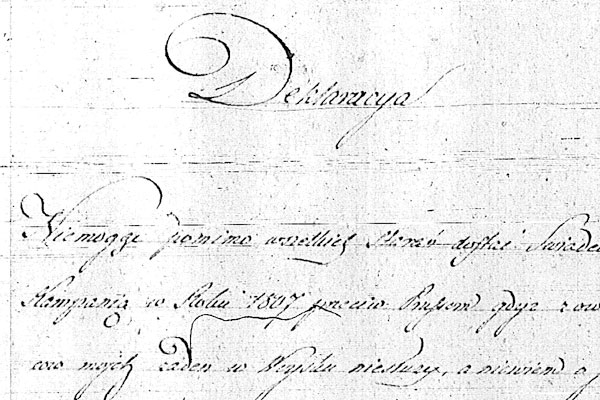 Deklaracya
Niemogąc pomimo wszelkich Starań dostać Swiade
Kampanią w Roku 1807 przeciw Prussom gdyż z ow
ców moich żaden w Woysku niesłuży, a niewiem